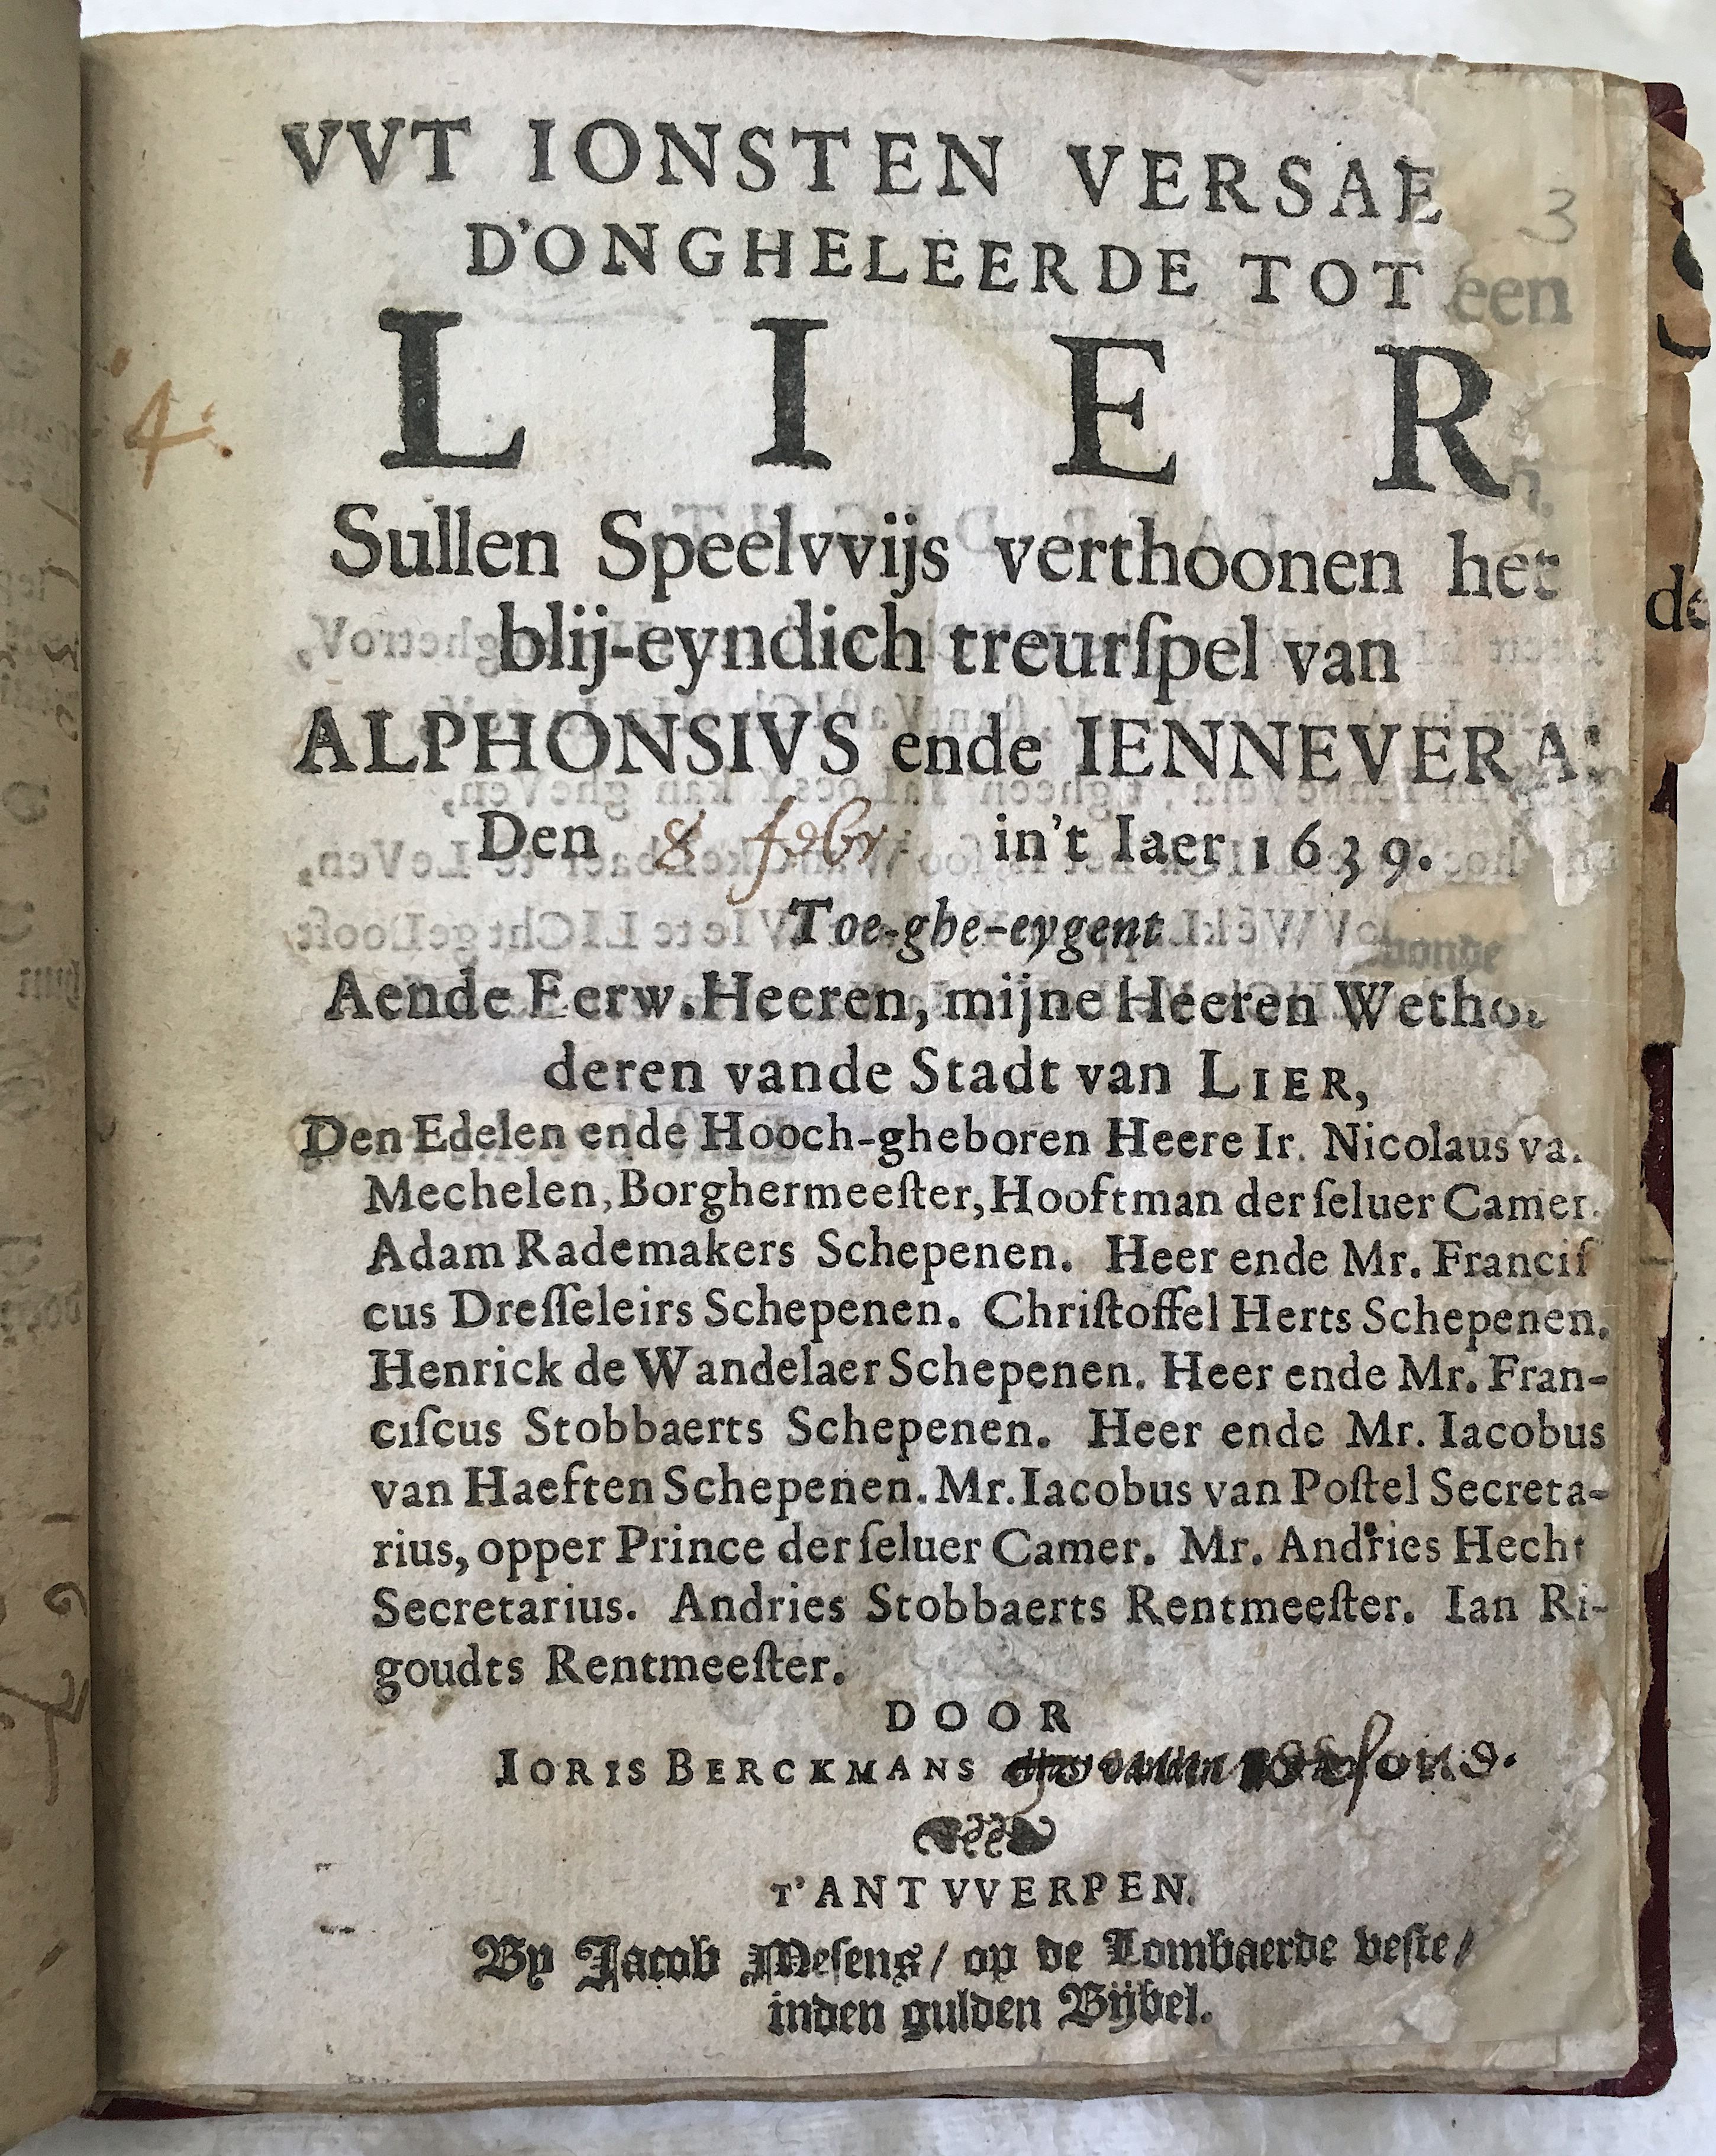 VVT IONSTEN VERSAE
3
D'ONGHELEERDE TOT
een
LIER
4.
Sullen Speelvvijs verthoonen het
blij-eyndich treurſpel van
de
ALPHONSIVS ende IENNEVERA:
Den 8 febr: in't Iaer 1639.
Toe-ghe-eygent
Aende Eerw. Heeren, mijne Heeren Wethou
deren vande Stadt van LIER,
Den Edelen ende Hooch-gheboren Heere Ir. Nicolaus va
Mechelen, Borghermeeſter, Hooftman der ſeluer Camer.
Adam Rademakers Schepenen. Heer ende Mr. Franciſ
cus Dreſſeleirs Schepenen. Chriſtoffel Herts Schepenen.
Henrick de Wandelaer Schepenen. Heer ende Mr. Fran-
ciſcus Stobbaerts Schepenen. Heer ende Mr. Iacobus
van Haeften Schepenen. Mr. Iacobus van Poſtel Secreta-
rius, opper Prince der ſeluer Camer. Mr. Andries Hecht
Secretarius. Andries Stobbaerts Rentmeeſter. Ian Ri-
goudts Rentmeeſter.
DOOR
IORIS BERCKMANS
T'ANTVVERPEN.
By Jacob Meſens/ op de Lombaerde veſte/
inden gulden Bijbel.